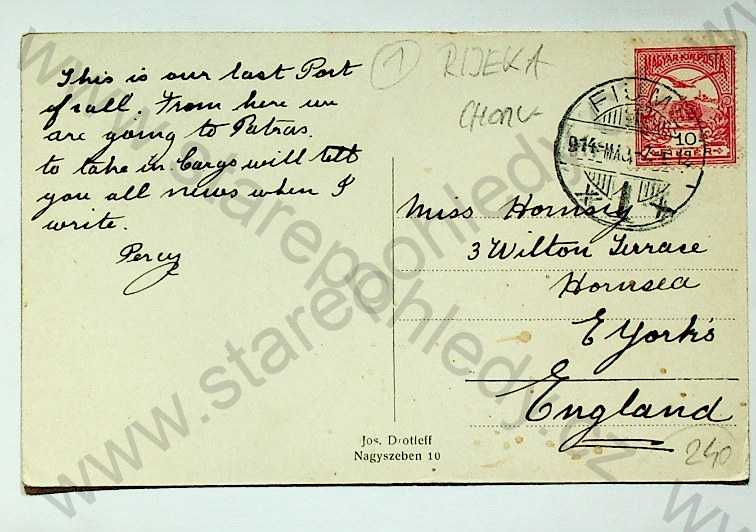 This is our last Port
of call. From here we
are going to Patras.
to take in Cargo will tell
you all news when I
write.
Percy
1 RIJEKA
CHORV
MAGYAR KIR. POSTA
10
FIUME
914
1
Miss Hornsey
3 Wilton Terrace
Hornsea
E Yorks
England
Jos. Drotleff
Nagyszeben 10
240
www.starepohledy.cz